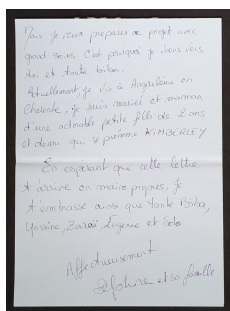 Mais je veux préparer ce projet avec
grand soin. C'est pourquoi je viens vers
toi et tante Biba.
Actuellement, je vis à Angoulême en
Charente, je suis mariée et maman
d'une adorable petite fille de 2 ans
et demi qui se prénomme KIMBERLEY
En espérant que cette lettre
t'arrive en mains propres, je
t'embrasse ainsi que Tante Biba,
Yassine, Eugénie et
Affectueusement
et sa famille